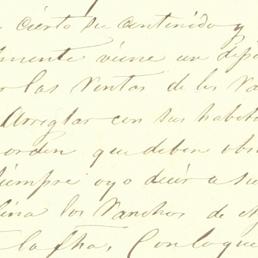 cierto su contenido y
mente viene un
las Ventas de los
Arreglar con sus
orden que deben
siempre oyo decir a su
los Ranchos de
la fha, Con lo que